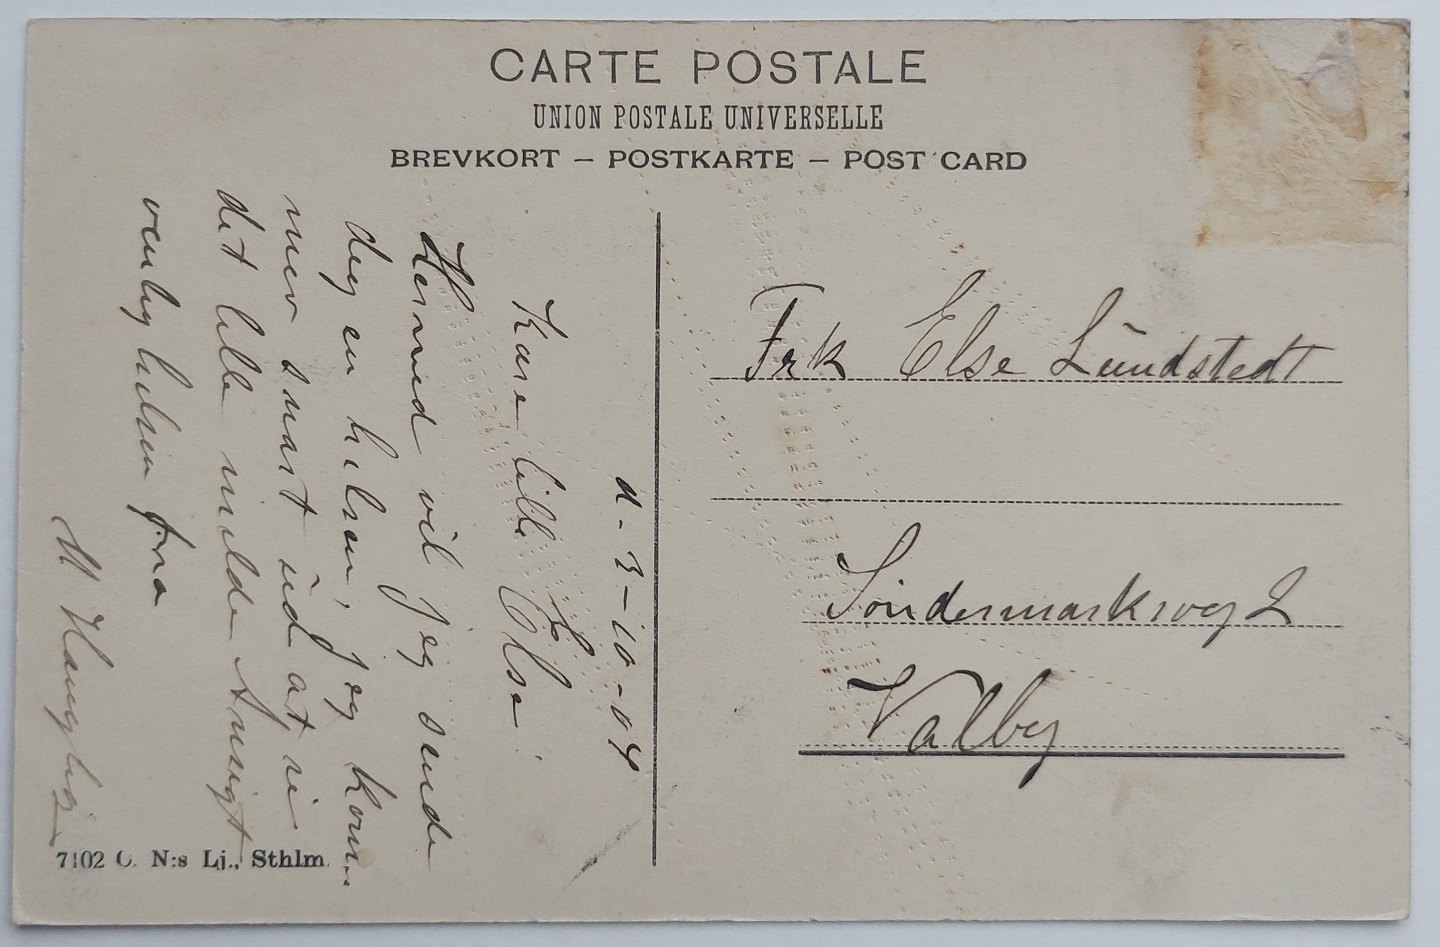 CARTE POSTALE
UNION POSTALE UNIVERSELLE
BREVKORT — POSTKARTE — POST CARD
d. 3-10-04
Kære lille Else.
Hermed vil jeg sende
dig en hilsen, jeg kom-
mer snart ud at se
det lille milde Ansigt
venlig hilsen fra
M
Frk Else Lundstedt
Söndermarksvej 2
Valby
7102 C. N:s Lj., Sthlm.